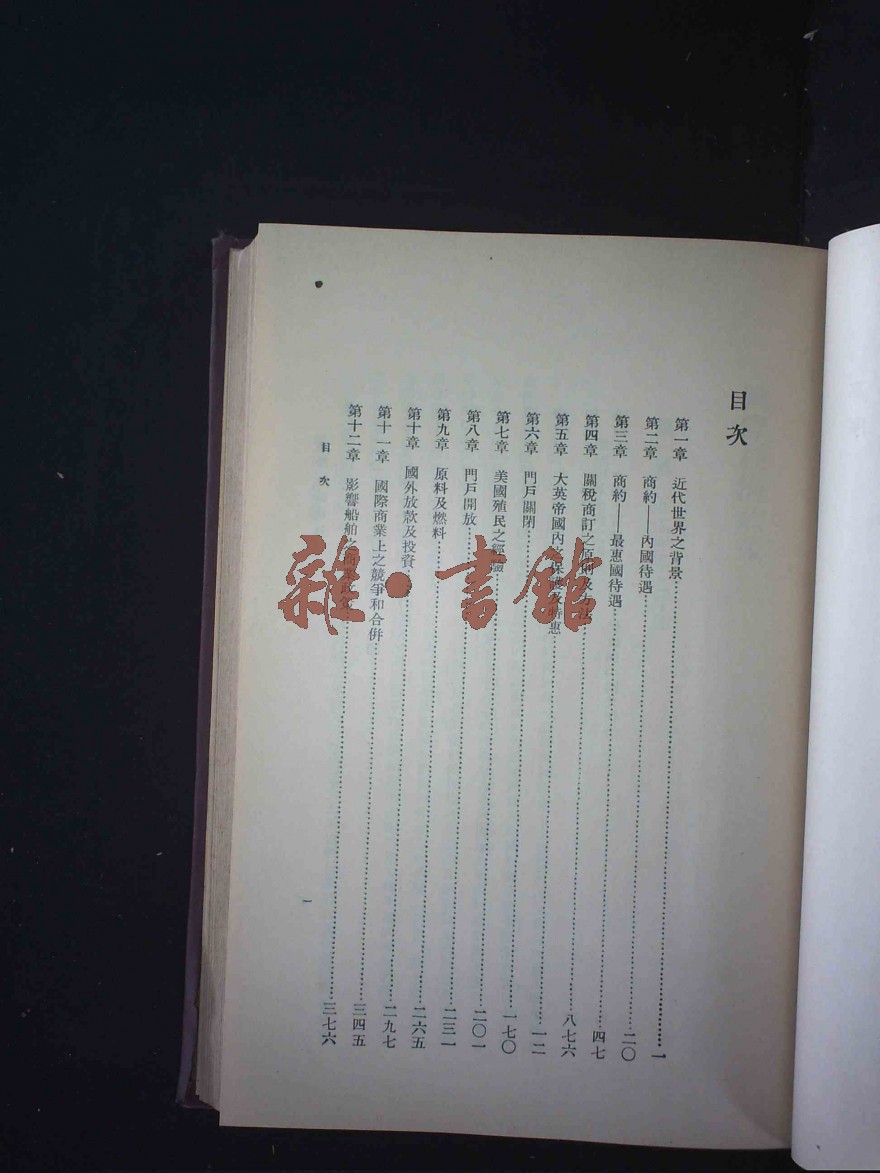 目次
第一章 近代世界之背景……一
第二章 商約——內國待遇……二〇
第三章 商約——最惠國待遇……四七
第四章 關稅商訂之原則及方法……八七六
第五章 大英帝國內之保護及特惠……一二
第六章 門戶關閉……一七〇
第七章 美國殖民之經驗……二〇一
第八章 門戶開放……二三一
第九章 原料及燃料……二六五
第十章 國外放款及投資……二九七
第十一章 國際商業上之競爭和合併……三四五
第十二章 影響船舶之商業政策……三七六
目次
一
雜·書館